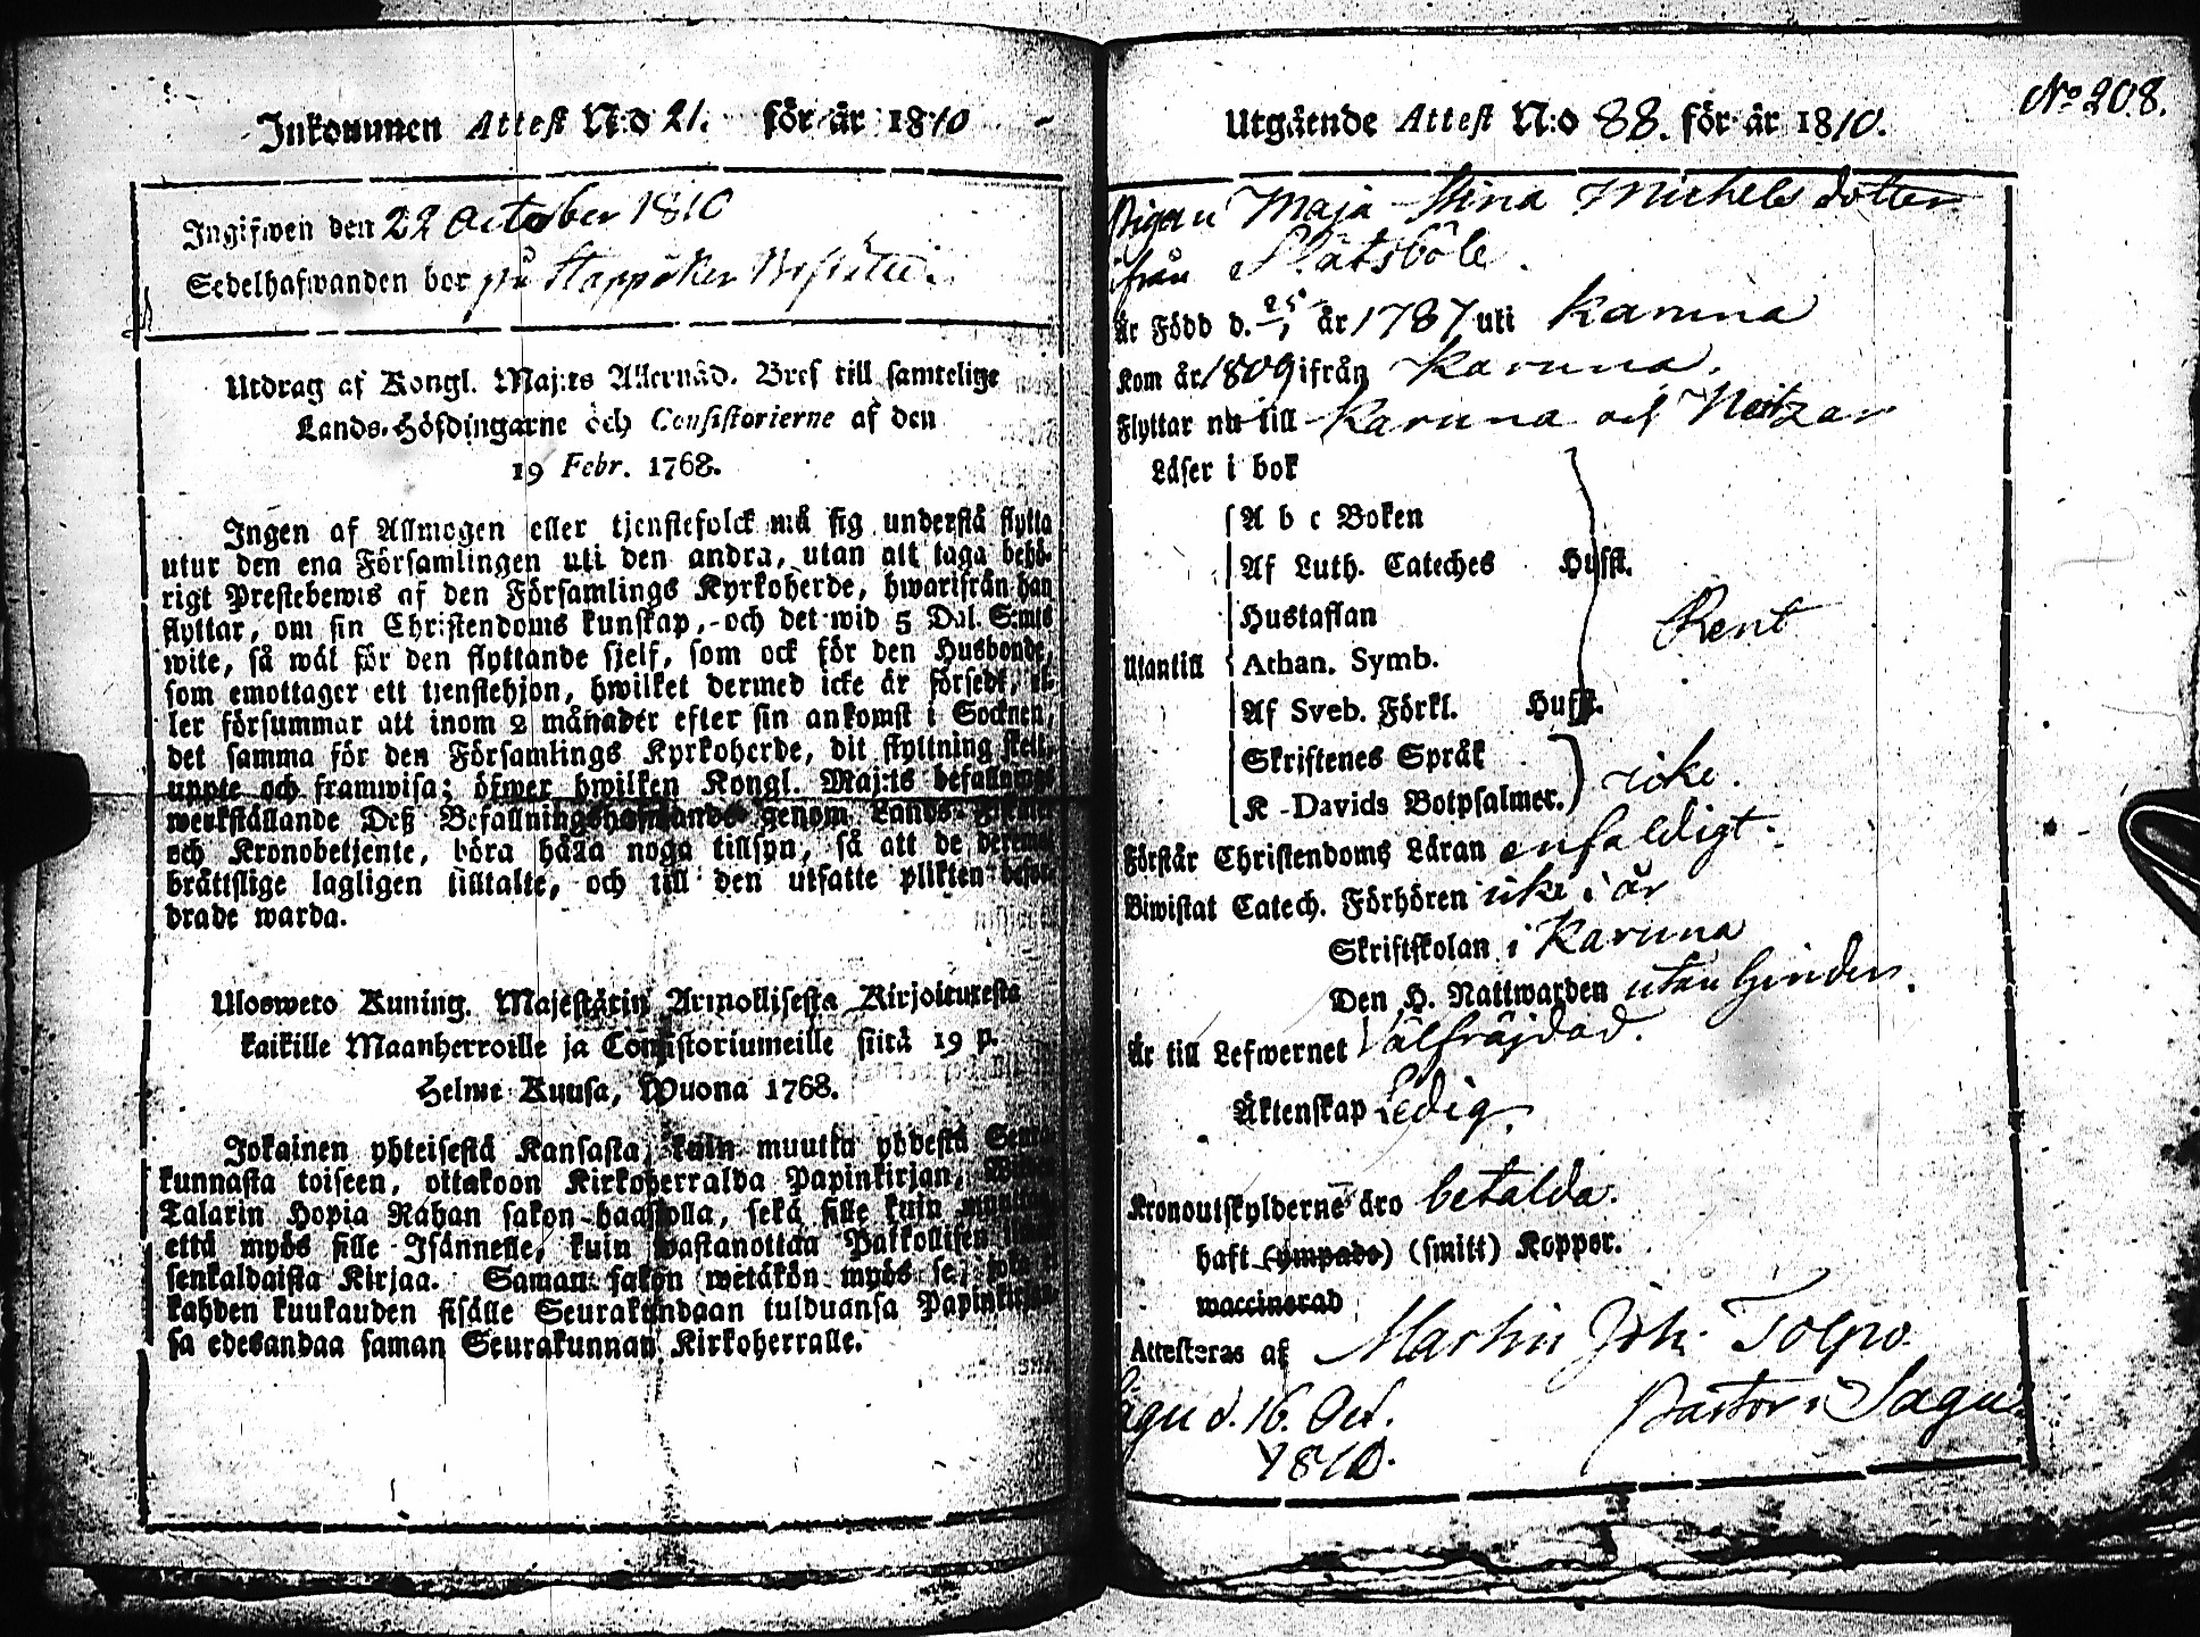 Inkommen Attest N:o 21. för år 1810
Ingifwen den 22 October 1810
Sedelhafwanden bor på
Utdrag af Kongl. Maj:ts Allernåd. Bref till samtelige
Lands-Höfdingarne och Consistorierne af den
19 Febr. 1768.
Ingen af Allmogen eller tjenstefolck må sig understå flytta
utur den ena Församlingen uti den andra, utan att taga behö-
rigt Prestebewis af den Församlings Kyrkoherde, hwarifrån han
flyttar, om sin Christendoms kunskap, och det wid 5 Dal. S:mts
wite, så wäl för den flyttande sjelf, som ock för den Husbonde,
som emottager ett tjenstehjon, hwilket dermed icke är försedt, el-
ler försummar att inom 2 månader efter sin ankomst i Socknen,
det samma för den Församlings Kyrkoherde, dit flyttning skett,
uppte och framwisa; öfwer hwilken Kongl. Maj:ts befallnings
werkställande Deß Befallningshafwande genom Lands-
och Kronobetjente, böra hålla noga tillsyn, så att de deremot
bråttslige lagligen tilltalte, och till den utsatte plikten befor-
drade warda.
Ulosweto Kuning. Majestätin Armollisesta Kirjoituxesta
kaikille Maanherroille ja Consistoriumeille siitä 19 p.
Helme Kuusa, Wuona 1768.
Jokainen yhteisestä Kansasta, kuin muutta yhdestä Seura-
kunnasta toiseen, ottakoon Kirkoherralda Papinkirjan,
Talarin Hopia Rahan sakon haastolla, sekä sille kuin muuttaa
että myös sille Isännelle, kuin wastanottaa Palkollisen
senkaldaista Kirjaa. Saman sakon wetäkön myös se, joka
kahden kuukauden sisälle Seurakundaan tulduansa Papinkirjan-
sa edesandaa saman Seurakunnan Kirkoherralle.
No 208.
Utgående Attest N:o 88. för år 1810.
Pigan Maja Stina Michelsdotter
ifrån Slätsböle.
Är Född d. 25/1 år 1787 uti Karuna
Kom år 1809 ifrån Karuna.
Flyttar nu till Karuna och
Läser i bok
A b c Boken
Af Luth. Cateches Hufst.
Hustaflan
Rent
Utantill Athan. Symb.
Af Sveb. Förkl. Hufst.
Skriftenes Språk
K. Davids Botpsalmer. icke.
Förstår Christendoms Läran enfaldigt.
Biwistat Catech. Förhören icke i år
Skriftskolan i Karuna
Den H. Nattwarden utan hinder.
Är till Lefwernet Välfräjdad.
Äktenskap Ledig.
Kronoutskylderne äro betalda.
haft (ympade) (smitt) Koppor.
waccinerad
Attesteras af Martin Joh. Tolpo.
Sagu d. 16. Oct. Pastor i Sagu.
1810.